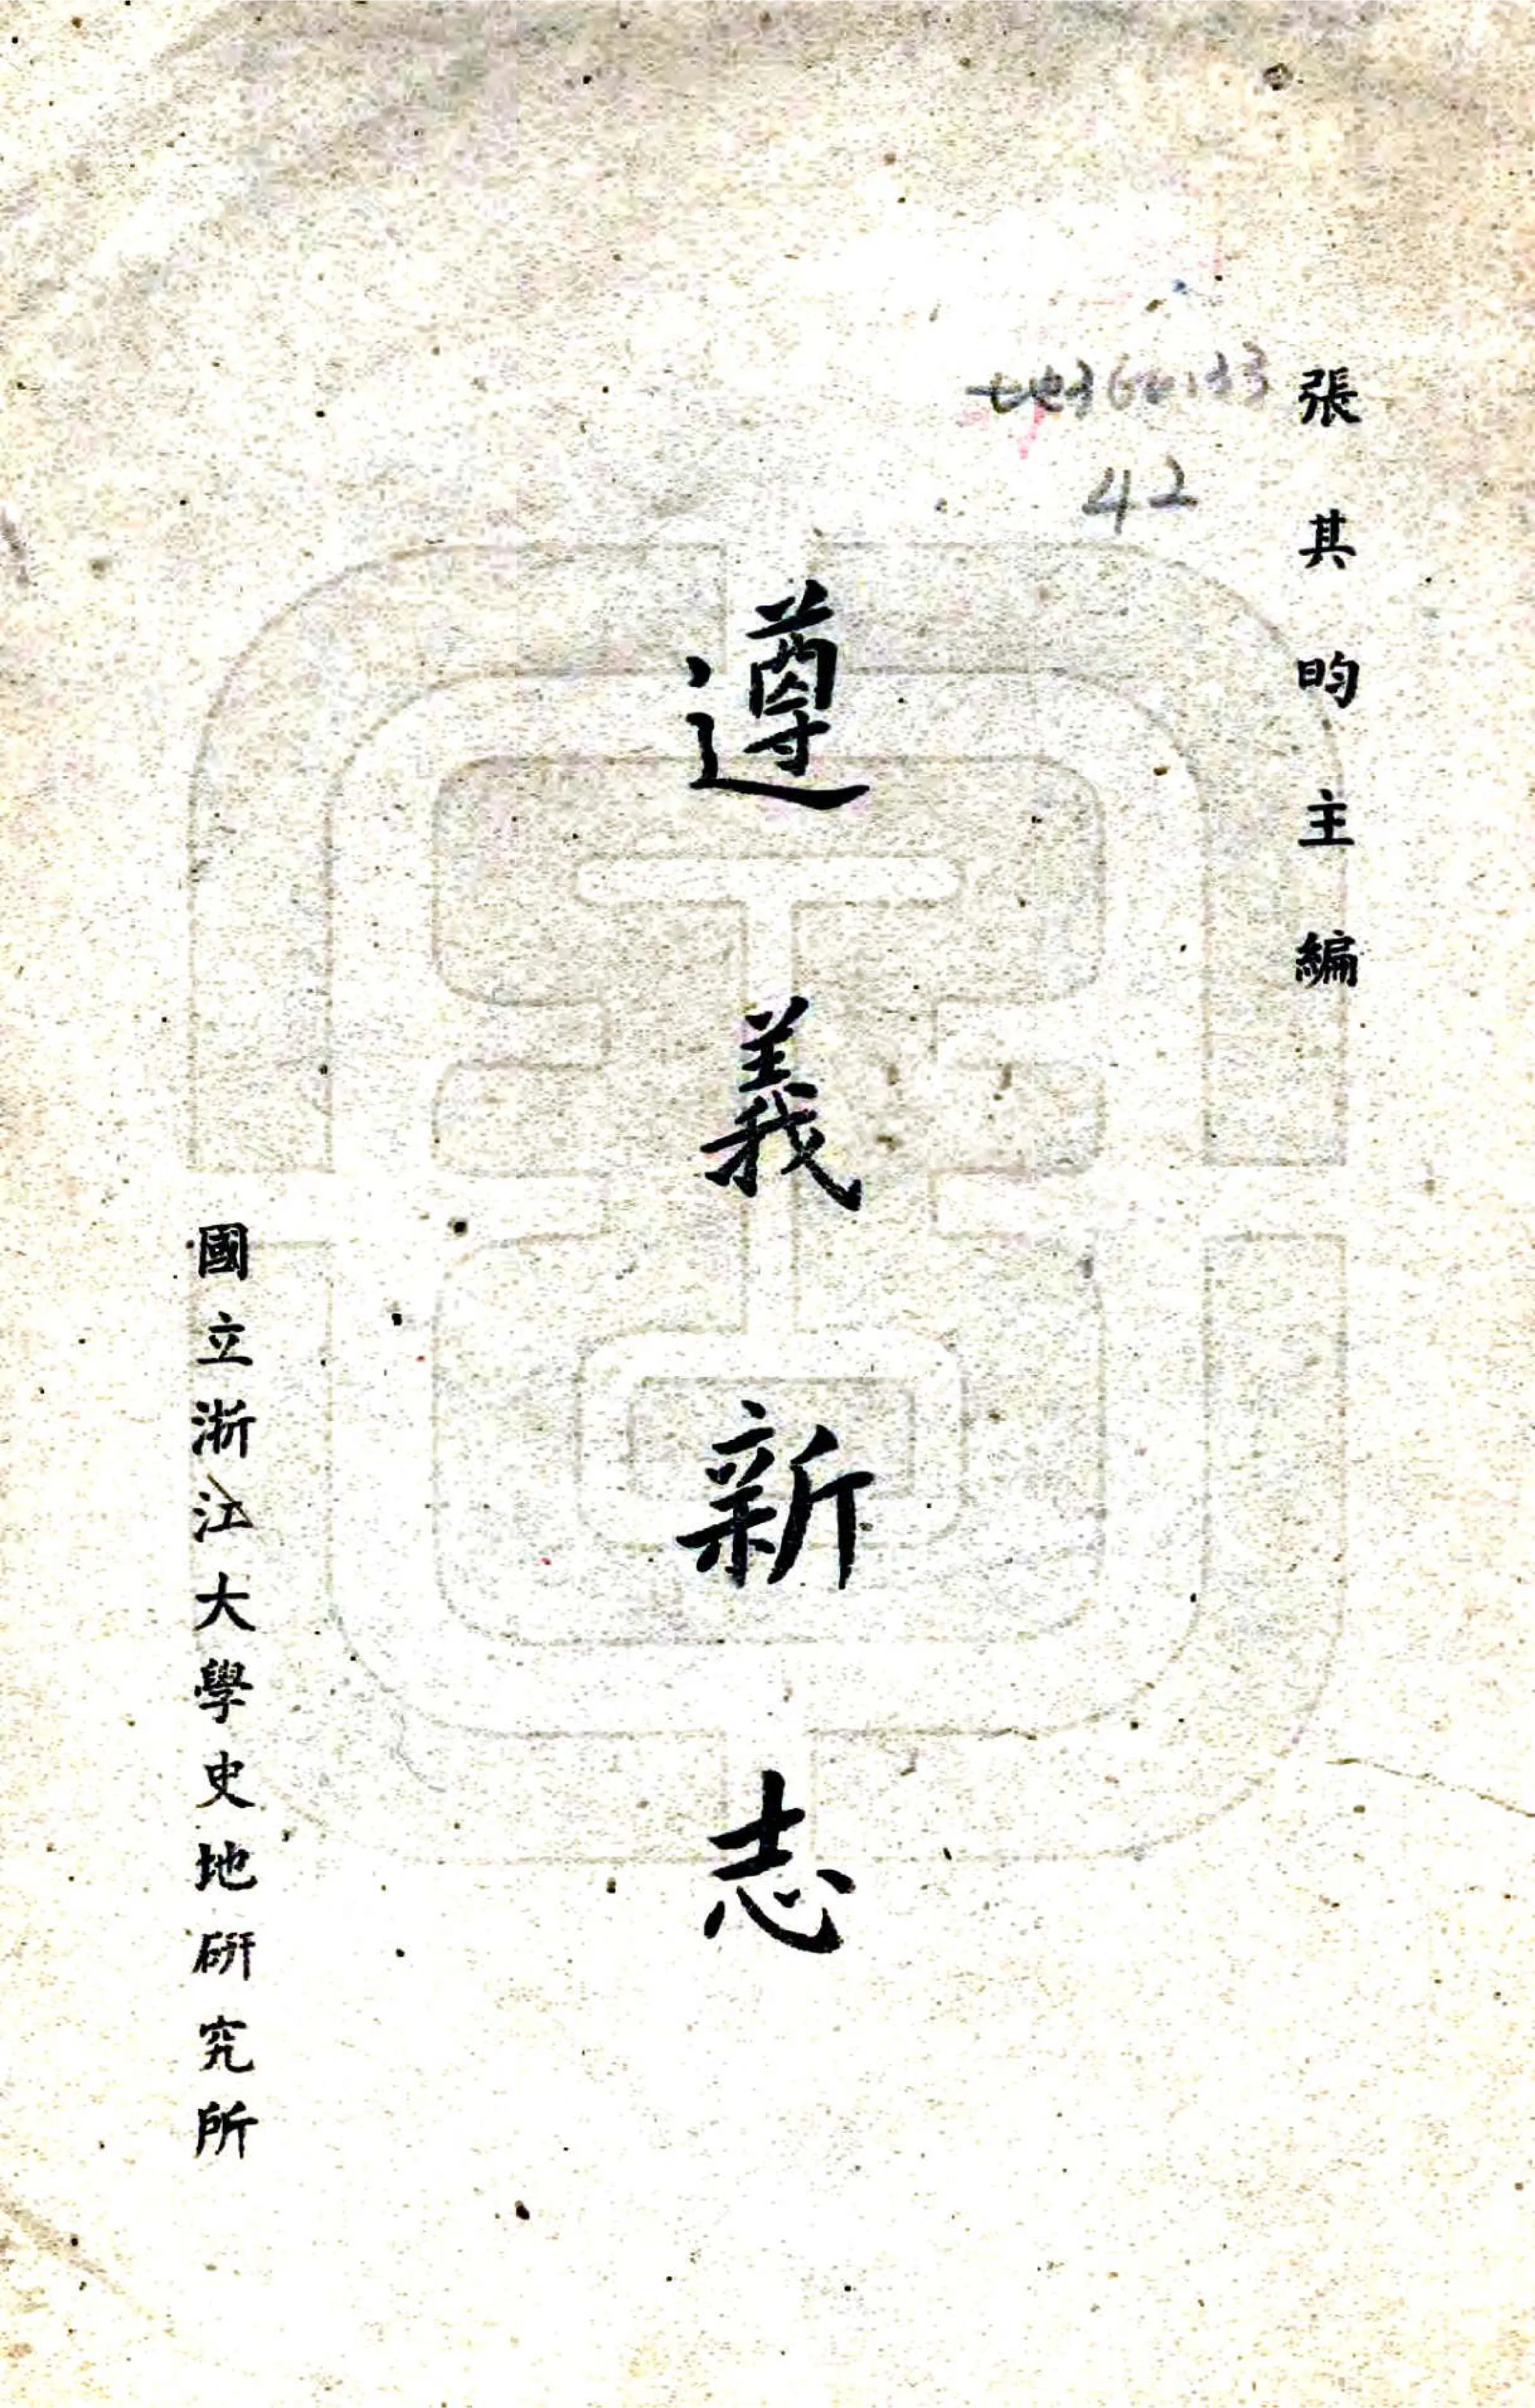 張其昀主編
42
遵義新志
國立浙江大學史地研究所